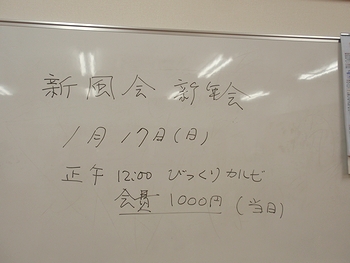 新風会 新年会
1月17日(日)
正午 12:00 びっくりカルビ
会費 1000円 (当日)